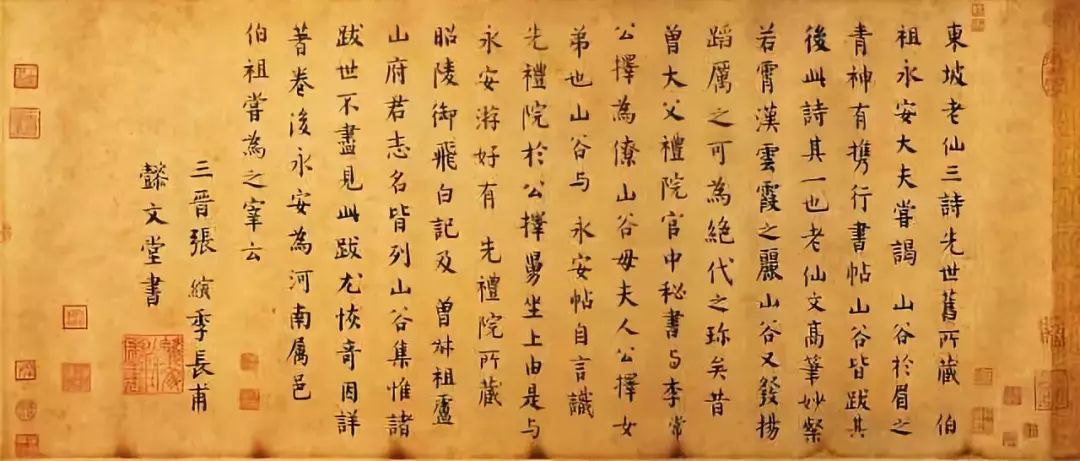 東坡老仙三詩先世舊所藏 伯
祖永安大夫嘗謁 山谷於眉之
青神有攜行書帖山谷皆跋其
後此詩其一也老仙文高筆妙粲
若霄漢雲霞之麗山谷又發揚
蹈厲之可為絕代之珍矣昔
曾大父禮院官中秘書与李常
公擇為僚山谷母夫人公擇女
弟也山谷与 永安帖自言識
先禮院於公擇舅坐上由是与
永安游好有 先禮院所藏
昭陵御飛白記及 曾叔祖盧
山府君志名皆列山谷集惟諸
跋世不盡見此跋尤恢奇因詳
著卷後永安為河南屬邑
伯祖嘗為之宰云
三晉張 縯季長甫
懿文堂書